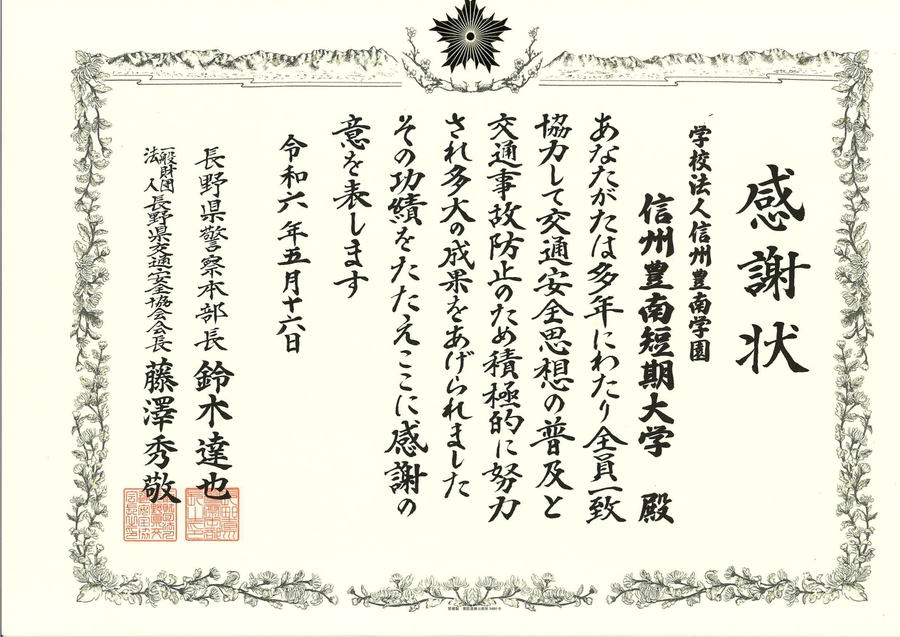 感謝状
学校法人信州豊南学園
信州豊南短期大学 殿
あなたがたは多年にわたり全員一致
協力して交通安全思想の普及と
交通事故防止のため積極的に努力
され多大の成果をあげられました
その功績をたたえここに感謝の
意を表します
令和六年五月十六日
長野県警察本部長 鈴木達也
一般財団法人長野県交通安全協会会長 藤澤秀敬